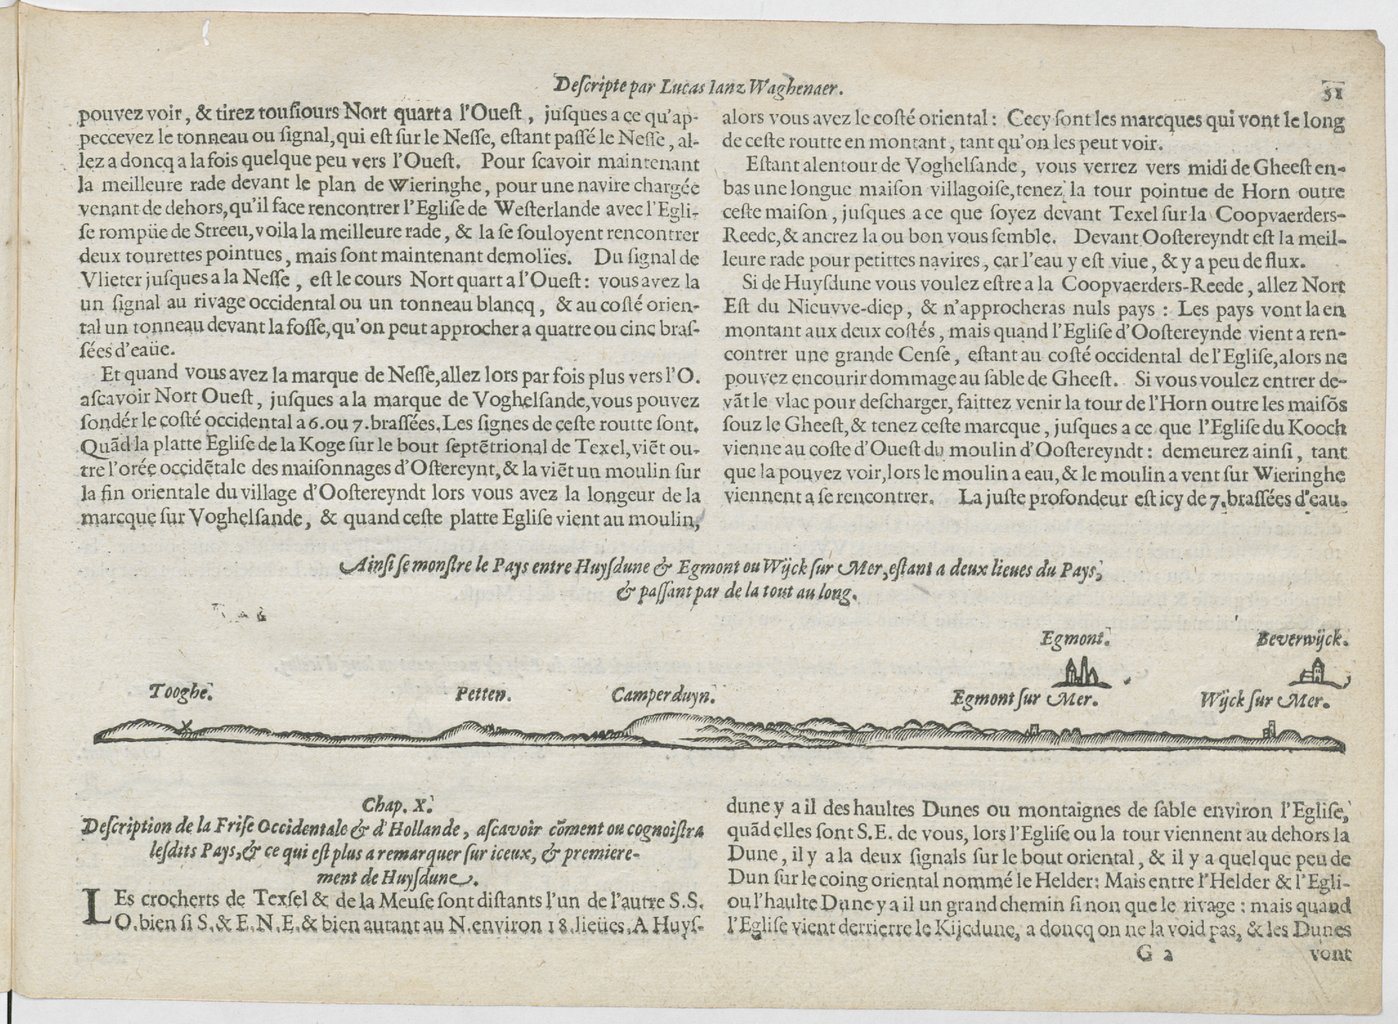 Descripte par Lucas Ianz Waghenaer.
51
pouvez voir, & tirez tousiours Nort quart a l'Ouest, jusques a ce qu'ap-
peccevez le tonneau ou signal, qui est sur le Nesse, estant passé le Nesse, al-
lez a doncq a la fois quelque peu vers l'Ouest. Pour scavoir maintenant
la meilleure rade devant le plan de Wieringhe, pour une navire chargée
venant de dehors, qu'il face rencontrer l'Eglise de Westerlande avec l'Egli-
se rompüe de Streeu, voila la meilleure rade, & la se souloyent rencontrer
deux tourettes pointues, mais sont maintenant demolies. Du signal de
Vlieter jusques a la Nesse, est le cours Nort quart a l'Ouest: vous avez la
un signal au rivage occidental ou un tonneau blancq, & au costé orien-
tal un tonneau devant la fosse, qu'on peut approcher a quatre ou cinc bras-
sées d'eaüe.
Et quand vous avez la marque de Nesse, allez lors par fois plus vers l'O.
ascavoir Nort Ouest, jusques a la marque de Voghelsande, vous pouvez
sondér le costé occidental a 6. ou 7. brassées. Les signes de ceste routte sont.
Quãd la platte Eglise de la Koge sur le bout septẽtrional de Texel, viẽt ou-
tre l'orée occidẽtale des maisonnages d'Ostereynt, & la viẽt un moulin sur
la fin orientale du village d'Oostereyndt lors vous avez la longeur de la
marcque sur Voghelsande, & quand ceste platte Eglise vient au moulin,
alors vous avez le costé oriental: Cecy sont les marcques qui vont le long
de ceste routte en montant, tant qu'on les peut voir.
Estant alentour de Voghelsande, vous verrez vers midi de Gheest en-
bas une longue maison villagoise, tenez la tour pointue de Horn outre
ceste maison, jusques a ce que soyez devant Texel sur la Coopvaerders-
Reede, & ancrez la ou bon vous semble. Devant Oostereyndt est la meil-
leure rade pour petittes navires, car l'eau y est viue, & y a peu de flux.
Si de Huysdune vous voulez estre a la Coopvaerders-Reede, allez Nort
Est du Nieuvve-diep, & n'approcheras nuls pays: Les pays vont la en
montant aux deux costés, mais quand l'Eglise d'Oostereynde vient a ren-
contrer une grande Cense, estant au costé occidental de l'Eglise, alors ne
pouvez encourir dommage au sable de Gheest. Si vous voulez entrer de-
vãt le vlac pour descharger, faittez venir la tour de l'Horn outre les maisõs
souz le Gheest, & tenez ceste marcque, jusques a ce que l'Eglise du Kooch
vienne au coste d'Ouest du moulin d'Oostereyndt: demeurez ainsi, tant
que la pouvez voir, lors le moulin a eau, & le moulin a vent sur Wieringhe
viennent a se rencontrer. La juste profondeur est icy de 7. brassées d'eau.
Ainsi se monstre le Pays entre Huysdune & Egmont ou Wijck sur Mer, estant a deux lieues du Pays,
& passant par de la tout au long.
Egmont. Beverwijck.
Tooghe. Petten. Camperduyn. Egmont sur Mer. Wijck sur Mer.
Chap. X.
Description de la Frise Occidentale & d'Hollande, ascavoir cõment ou cognoistra
lesdits Pays, & ce qui est plus a remarquer sur iceux, & premiere-
ment de Huysdune.
LEs crocherts de Texsel & de la Meuse sont distants l'un de l'autre S.S.
O. bien si S. & E. N. E. & bien autant au N. environ 18. lieües. A Huys-
dune y a il des haultes Dunes ou montaignes de sable environ l'Eglise,
quãd elles sont S.E. de vous, lors l'Eglise ou la tour viennent au dehors la
Dune, il y a la deux signals sur le bout oriental, & il y a quelque peu de
Dun sur le coing oriental nommé le Helder: Mais entre l'Helder & l'Egli-
ou l'haulte Dune y a il un grand chemin si non que le rivage: mais quand
l'Eglise vient derrierre le Kijcdune, a doncq on ne la void pas, & les Dunes
G 2
vont